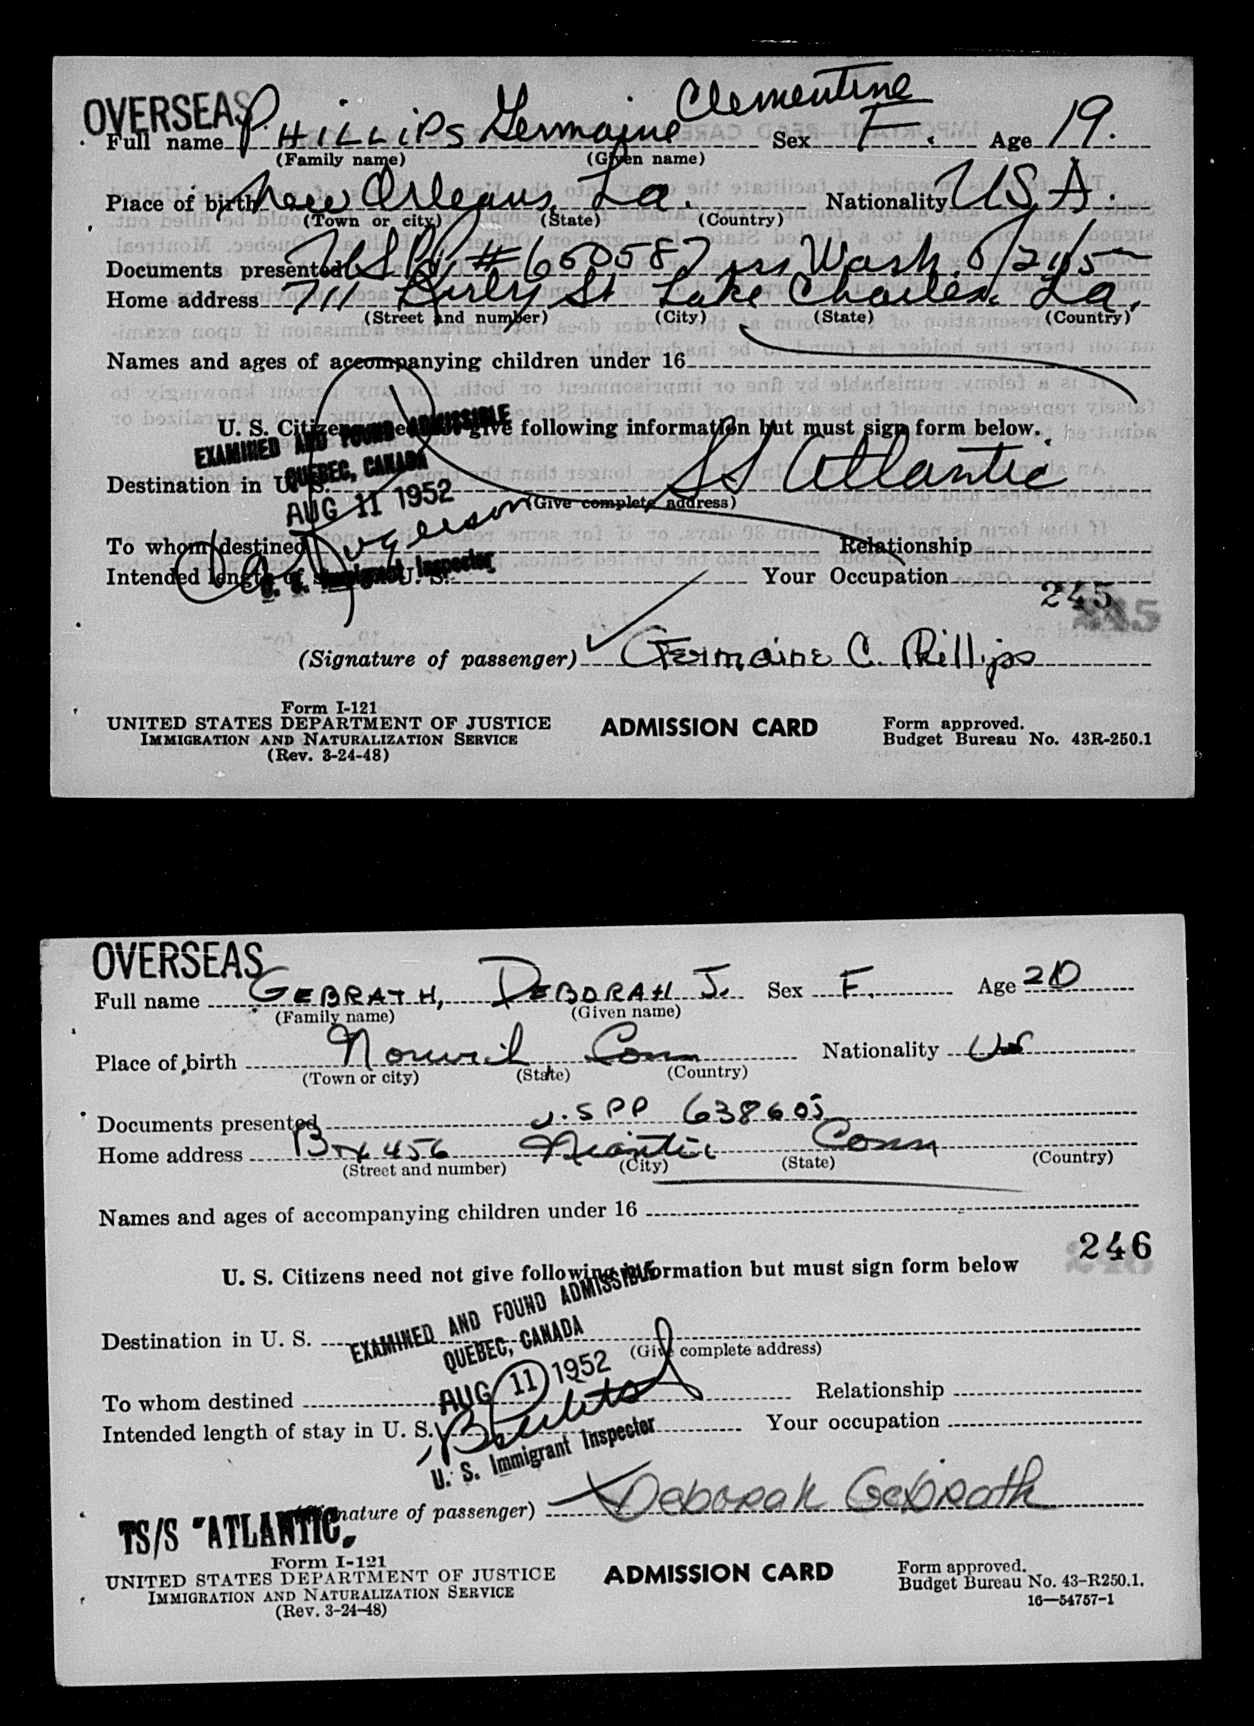 OVERSEAS
Clementine
Full name PHILLIPS Germaine Sex F. Age 19.
(Family name) (Given name)
Place of birth New Orleans, La. Nationality U.S.A.
(Town or city) (State) (Country)
Documents presented # 660587 Wash.
Home address 711 Kirby St Lake Charles, La.
(Street and number) (City) (State) (Country)
Names and ages of accompanying children under 16
U. S. Citizens need not give following information but must sign form below.
EXAMINED AND FOUND ADMISSIBLE
QUEBEC, CANADA
Destination in U. S. SS Atlantic
(Give complete address)
AUG 11 1952
To whom destined Relationship
Intended length of U. S. Your Occupation
U. S. Immigrant Inspector
245
(Signature of passenger) Germaine C. Phillips
Form I-121
UNITED STATES DEPARTMENT OF JUSTICE ADMISSION CARD Form approved.
IMMIGRATION AND NATURALIZATION SERVICE Budget Bureau No. 43R-250.1
(Rev. 3-24-48)
OVERSEAS
Full name GEBRATH, DEBORAH J. Sex F. Age 20
(Family name) (Given name)
Place of birth Conn Nationality US
(Town or city) (State) (Country)
Documents presented U.S PP 638605
Home address Box 456 Niantic Conn
(Street and number) (City) (State) (Country)
Names and ages of accompanying children under 16
246
U. S. Citizens need not give following information but must sign form below
EXAMINED AND FOUND ADMISSIBLE
QUEBEC, CANADA
Destination in U. S.
(Give complete address)
AUG 11 1952
To whom destined Relationship
Intended length of stay in U. S. Your occupation
U. S. Immigrant Inspector
(Signature of passenger) Deborah Gebrath
TS/S "ATLANTIC"
Form I-121
UNITED STATES DEPARTMENT OF JUSTICE ADMISSION CARD Form approved.
IMMIGRATION AND NATURALIZATION SERVICE Budget Bureau No. 43-R250.1.
(Rev. 3-24-48) 16—54757-1